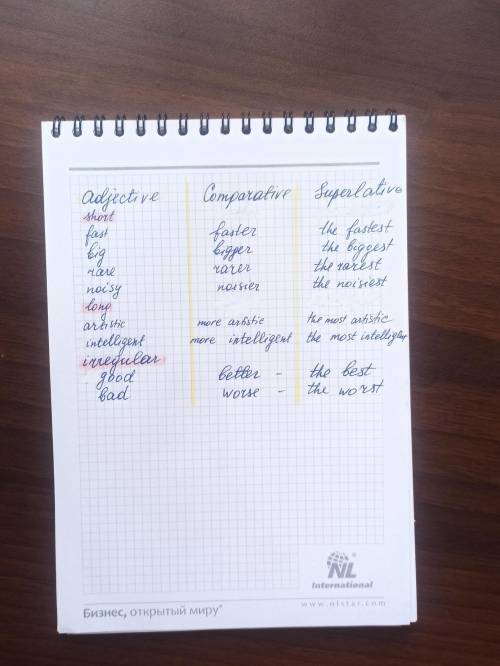 Adjective Comparative Superlative
short
fast faster the fastest
big bigger the biggest
rare rarer the rarest
noisy noisier the noisiest
long
artistic more artistic the most artistic
intelligent more intelligent the most intelligen
irregular
good better - the best
bad worse - the worst
NL®
International
Бизнес, открытый миру® www.nlstar.com